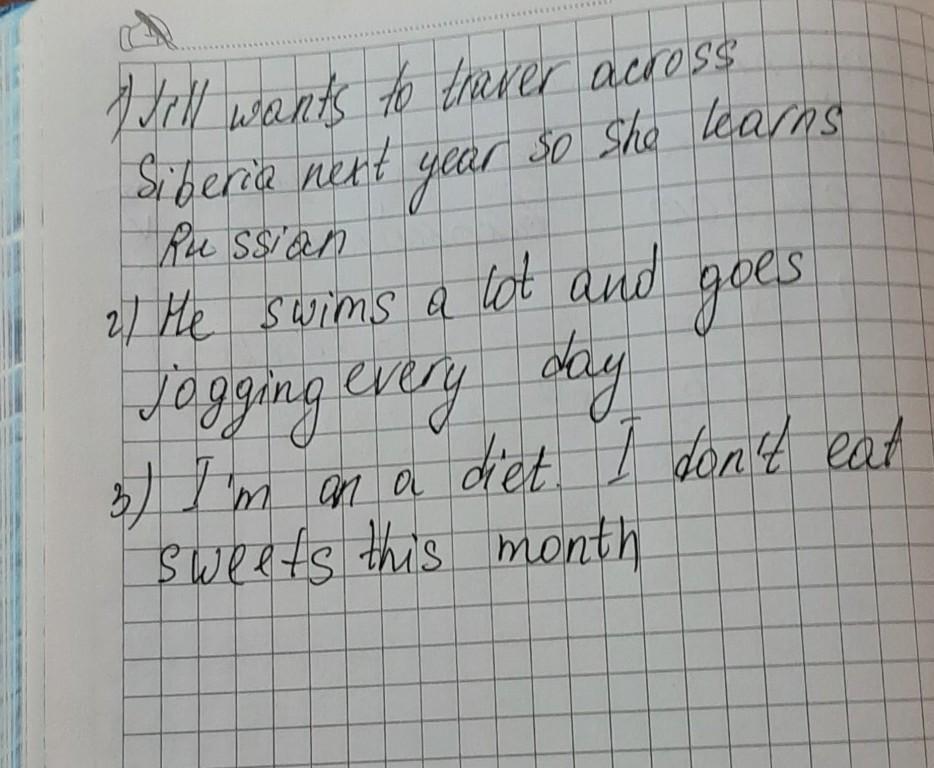 1) Jill wants to traver across
Siberia next year so she learns
Russian
2) He swims a lot and goes
jogging every day
3) I'm on a diet. I don't eat
sweets this month